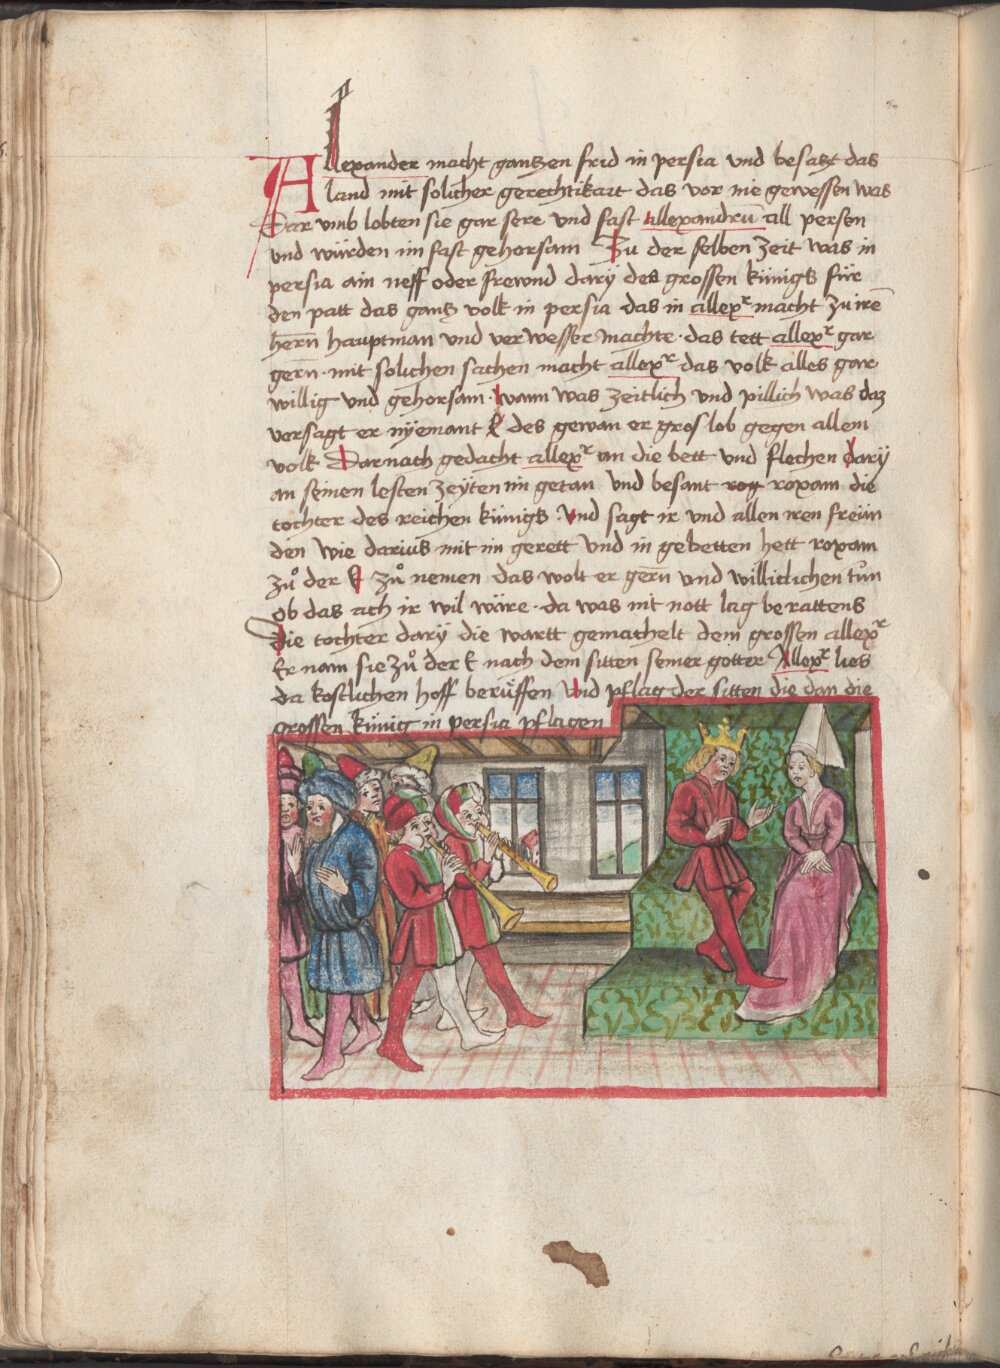 Allexander macht gantzen frid in persia vnd besatzt das
land mit solicher gerechtikait das vor nie gewessen was
Dar vmb lobten sie gar sere vnd fast allexandrū all persen
vnd würden im fast gehorsam Zu der selben zeit was in
persia ain neff oder frewnd darÿ des grossen künigs für
den patt das gantz volk in persia das in allexʳ macht zu irē
herrn hauptman vnd verwesser machte · das tett allexʳ gar
gern · mit solichen sachen macht allexʳ das volk alles gar
willig vnd gehorsam · wann was zeitlich vnd pillich was daz
versagt er nÿemant des gewan er gros lob gegen allem
volk Darnach gedacht allexʳ an die bett vnd flechen darÿ
an seinen lesten zeÿten im getan vnd besant roxam die
tochter des reichen künigs · vnd sagt ir vnd allen iren freün
den wie darius mit im gerett vnd in gebetten hett roxam
zů der E zů nemen das wolt er gern vnd williclichen tůn
ob das ach ir wil wäre · da was nit nott lag berattens
Die tochter darÿ die wartt gemachelt dem grossen allexʳ
Er nam sie zů der E nach dem sitten seiner gotter Allexʳ lies
da kostlichen hoff berüffen vnd pflag der sitten die dan die
grossen künig in persia pflagen